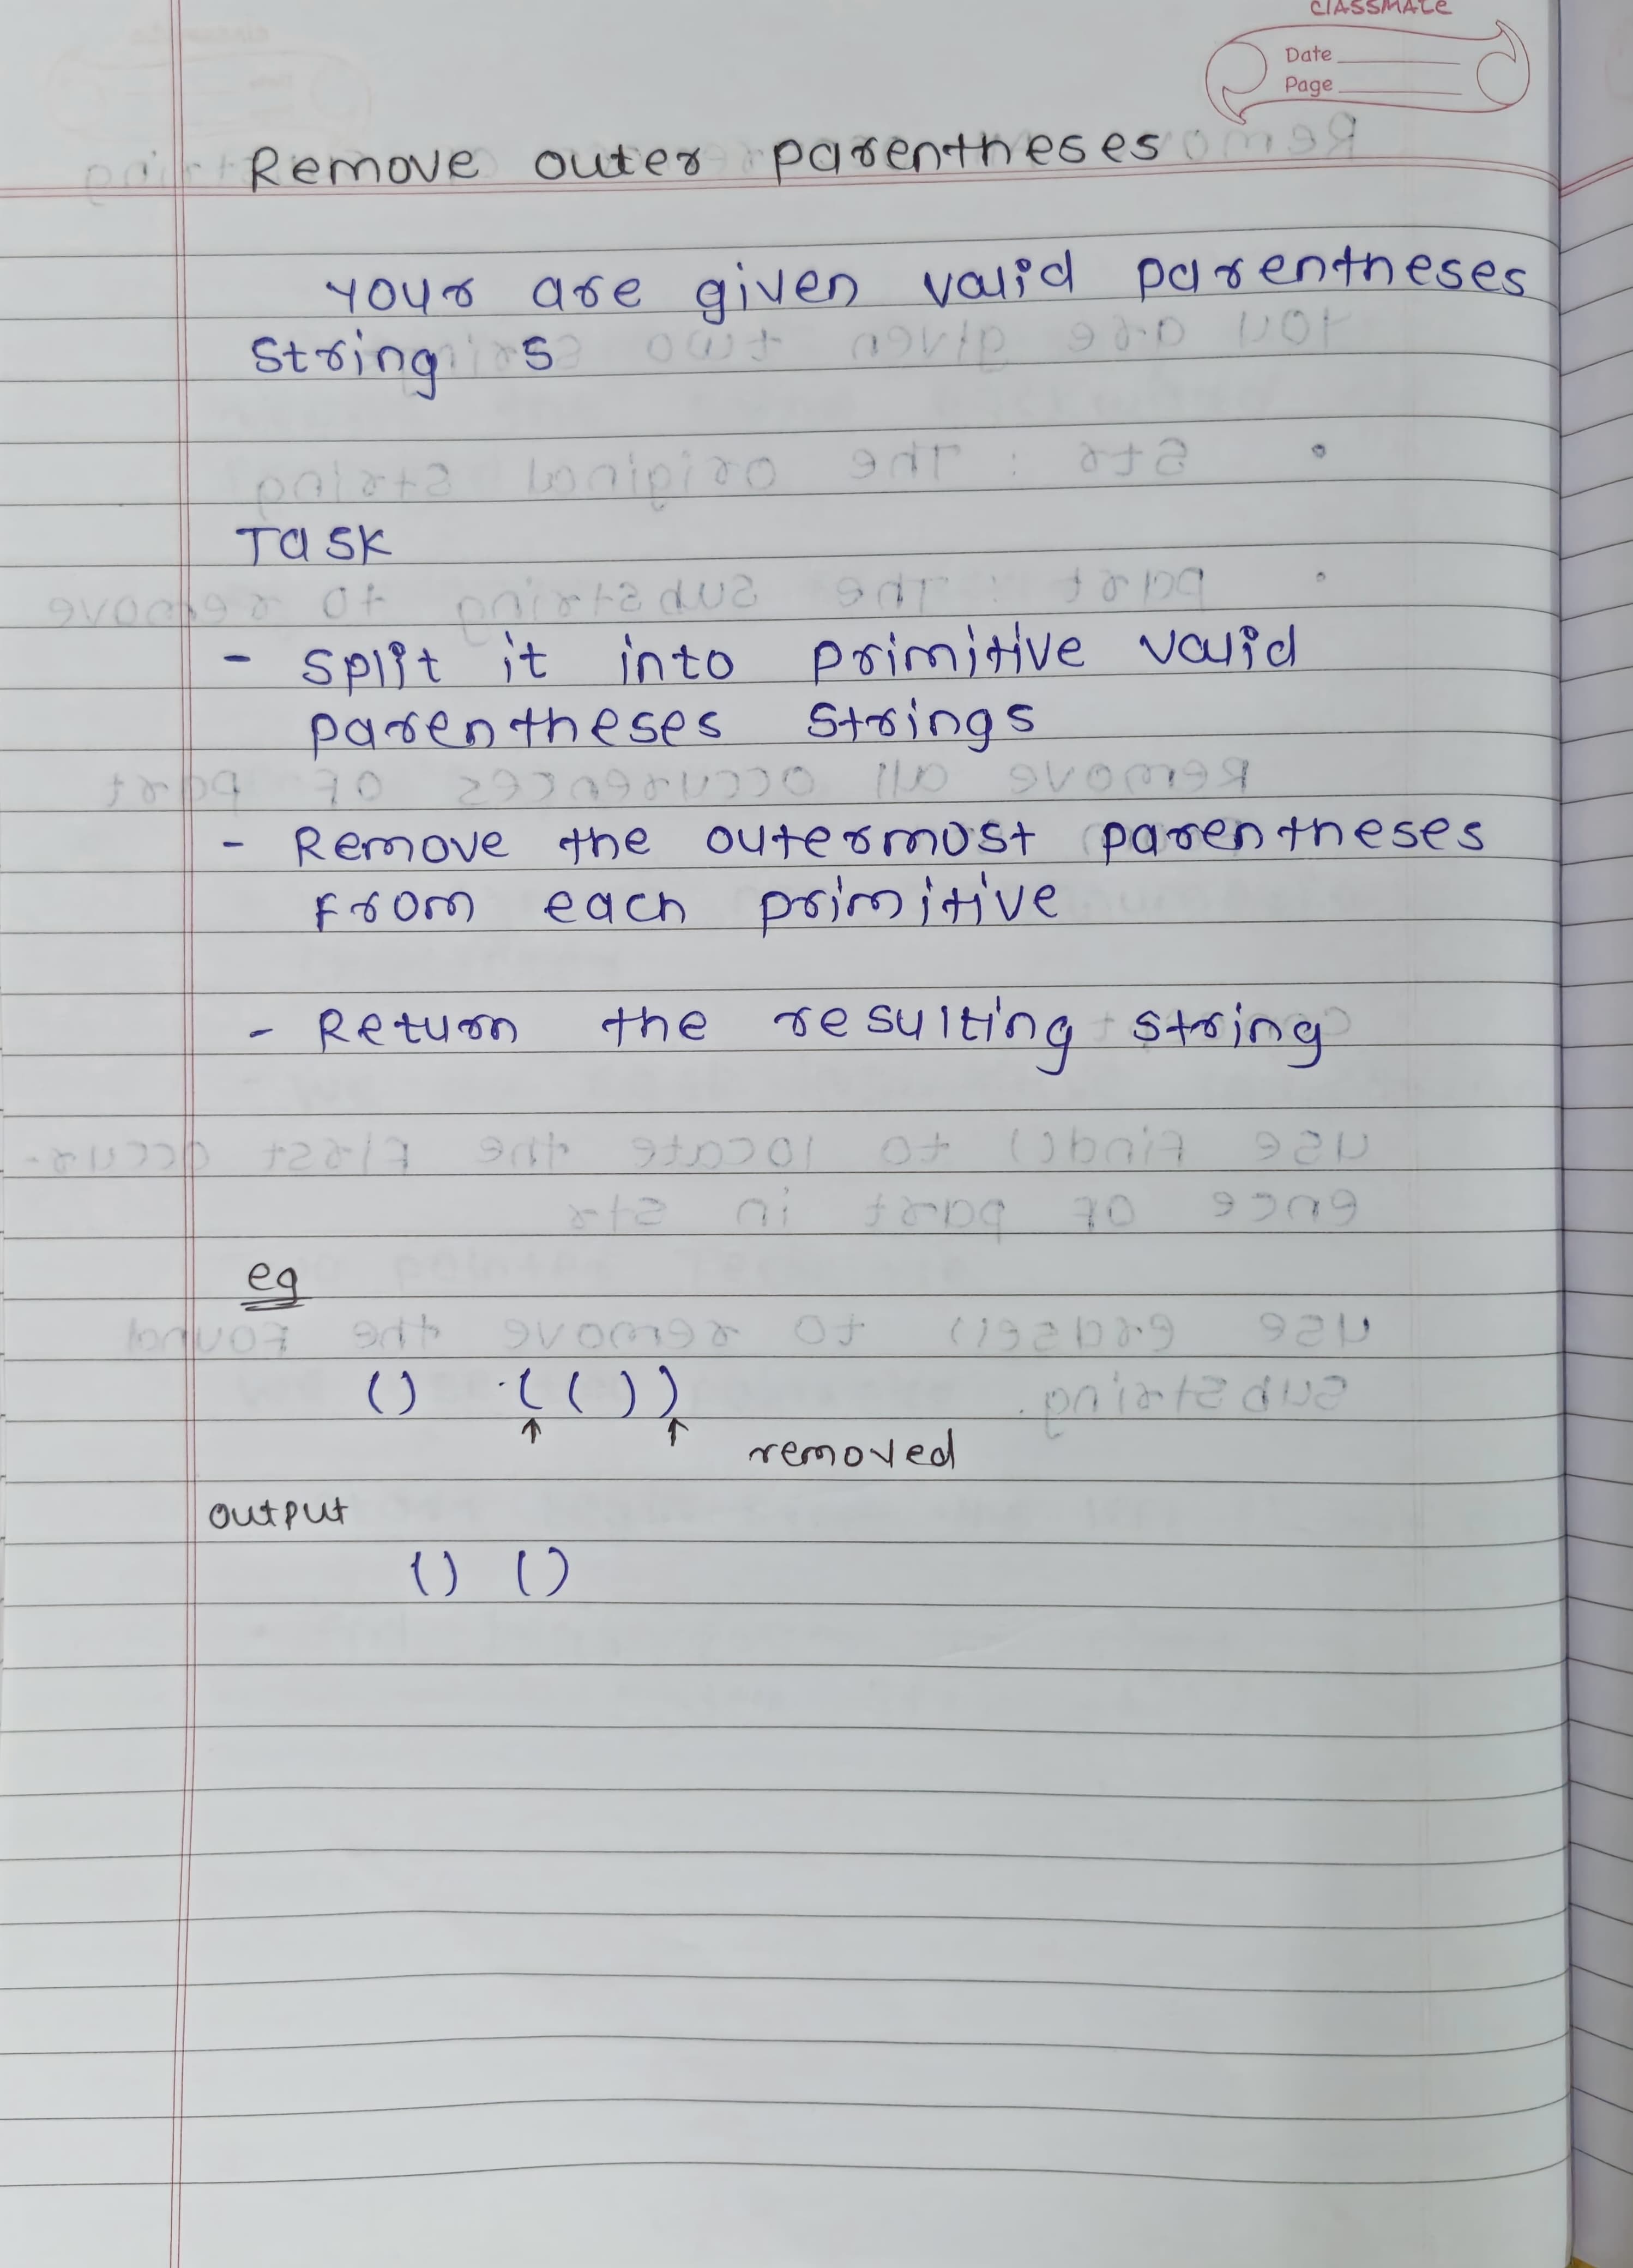 classmate
Date
Page
Remove outer parentheses
Your are given valid parentheses
string s
Task
- Split it into primitive valid
parentheses strings
- Remove the outermost parentheses
From each primitive
- Return the resulting string
eg
() (())
↑ ↑ removed
output
() ()